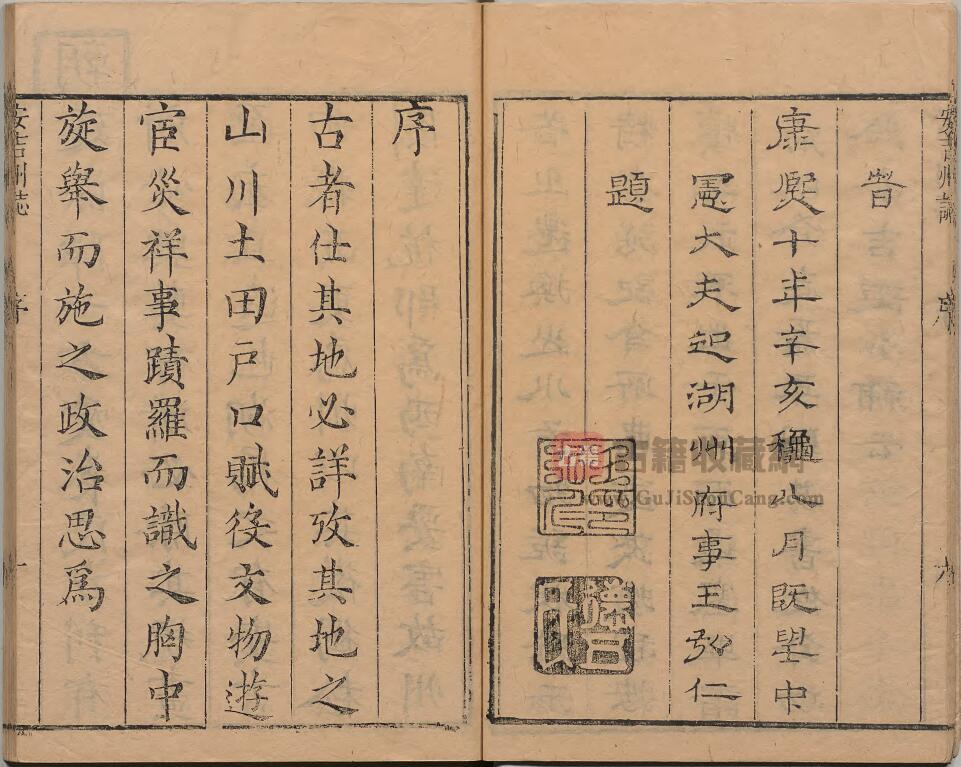 安吉州誌 序 九
時
康熙十年辛亥龝八月既望中
憲大夫知湖州府事王
仁
題
序
古者仕其地必詳攷其地之
山川土田戶口賦役文物遊
宦災祥事蹟羅而識之胸中
旋舉而施之政治思爲
安吉州誌 序 一
古籍收藏網
www.GuJiShouCang.com